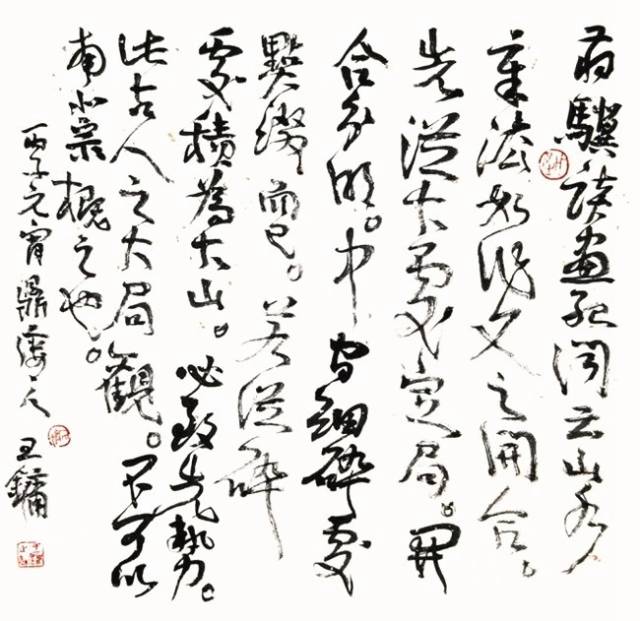 蔣驥讀畫紀聞云山水
章法如作文之開合。
先從大處定局。開
合分明。中間細碎處
點綴而已。若從碎
處積為大山。必致失勢。
此古人之大局觀。不可以
南北宗概之也。
丙子元宵鼎廔 王鏞